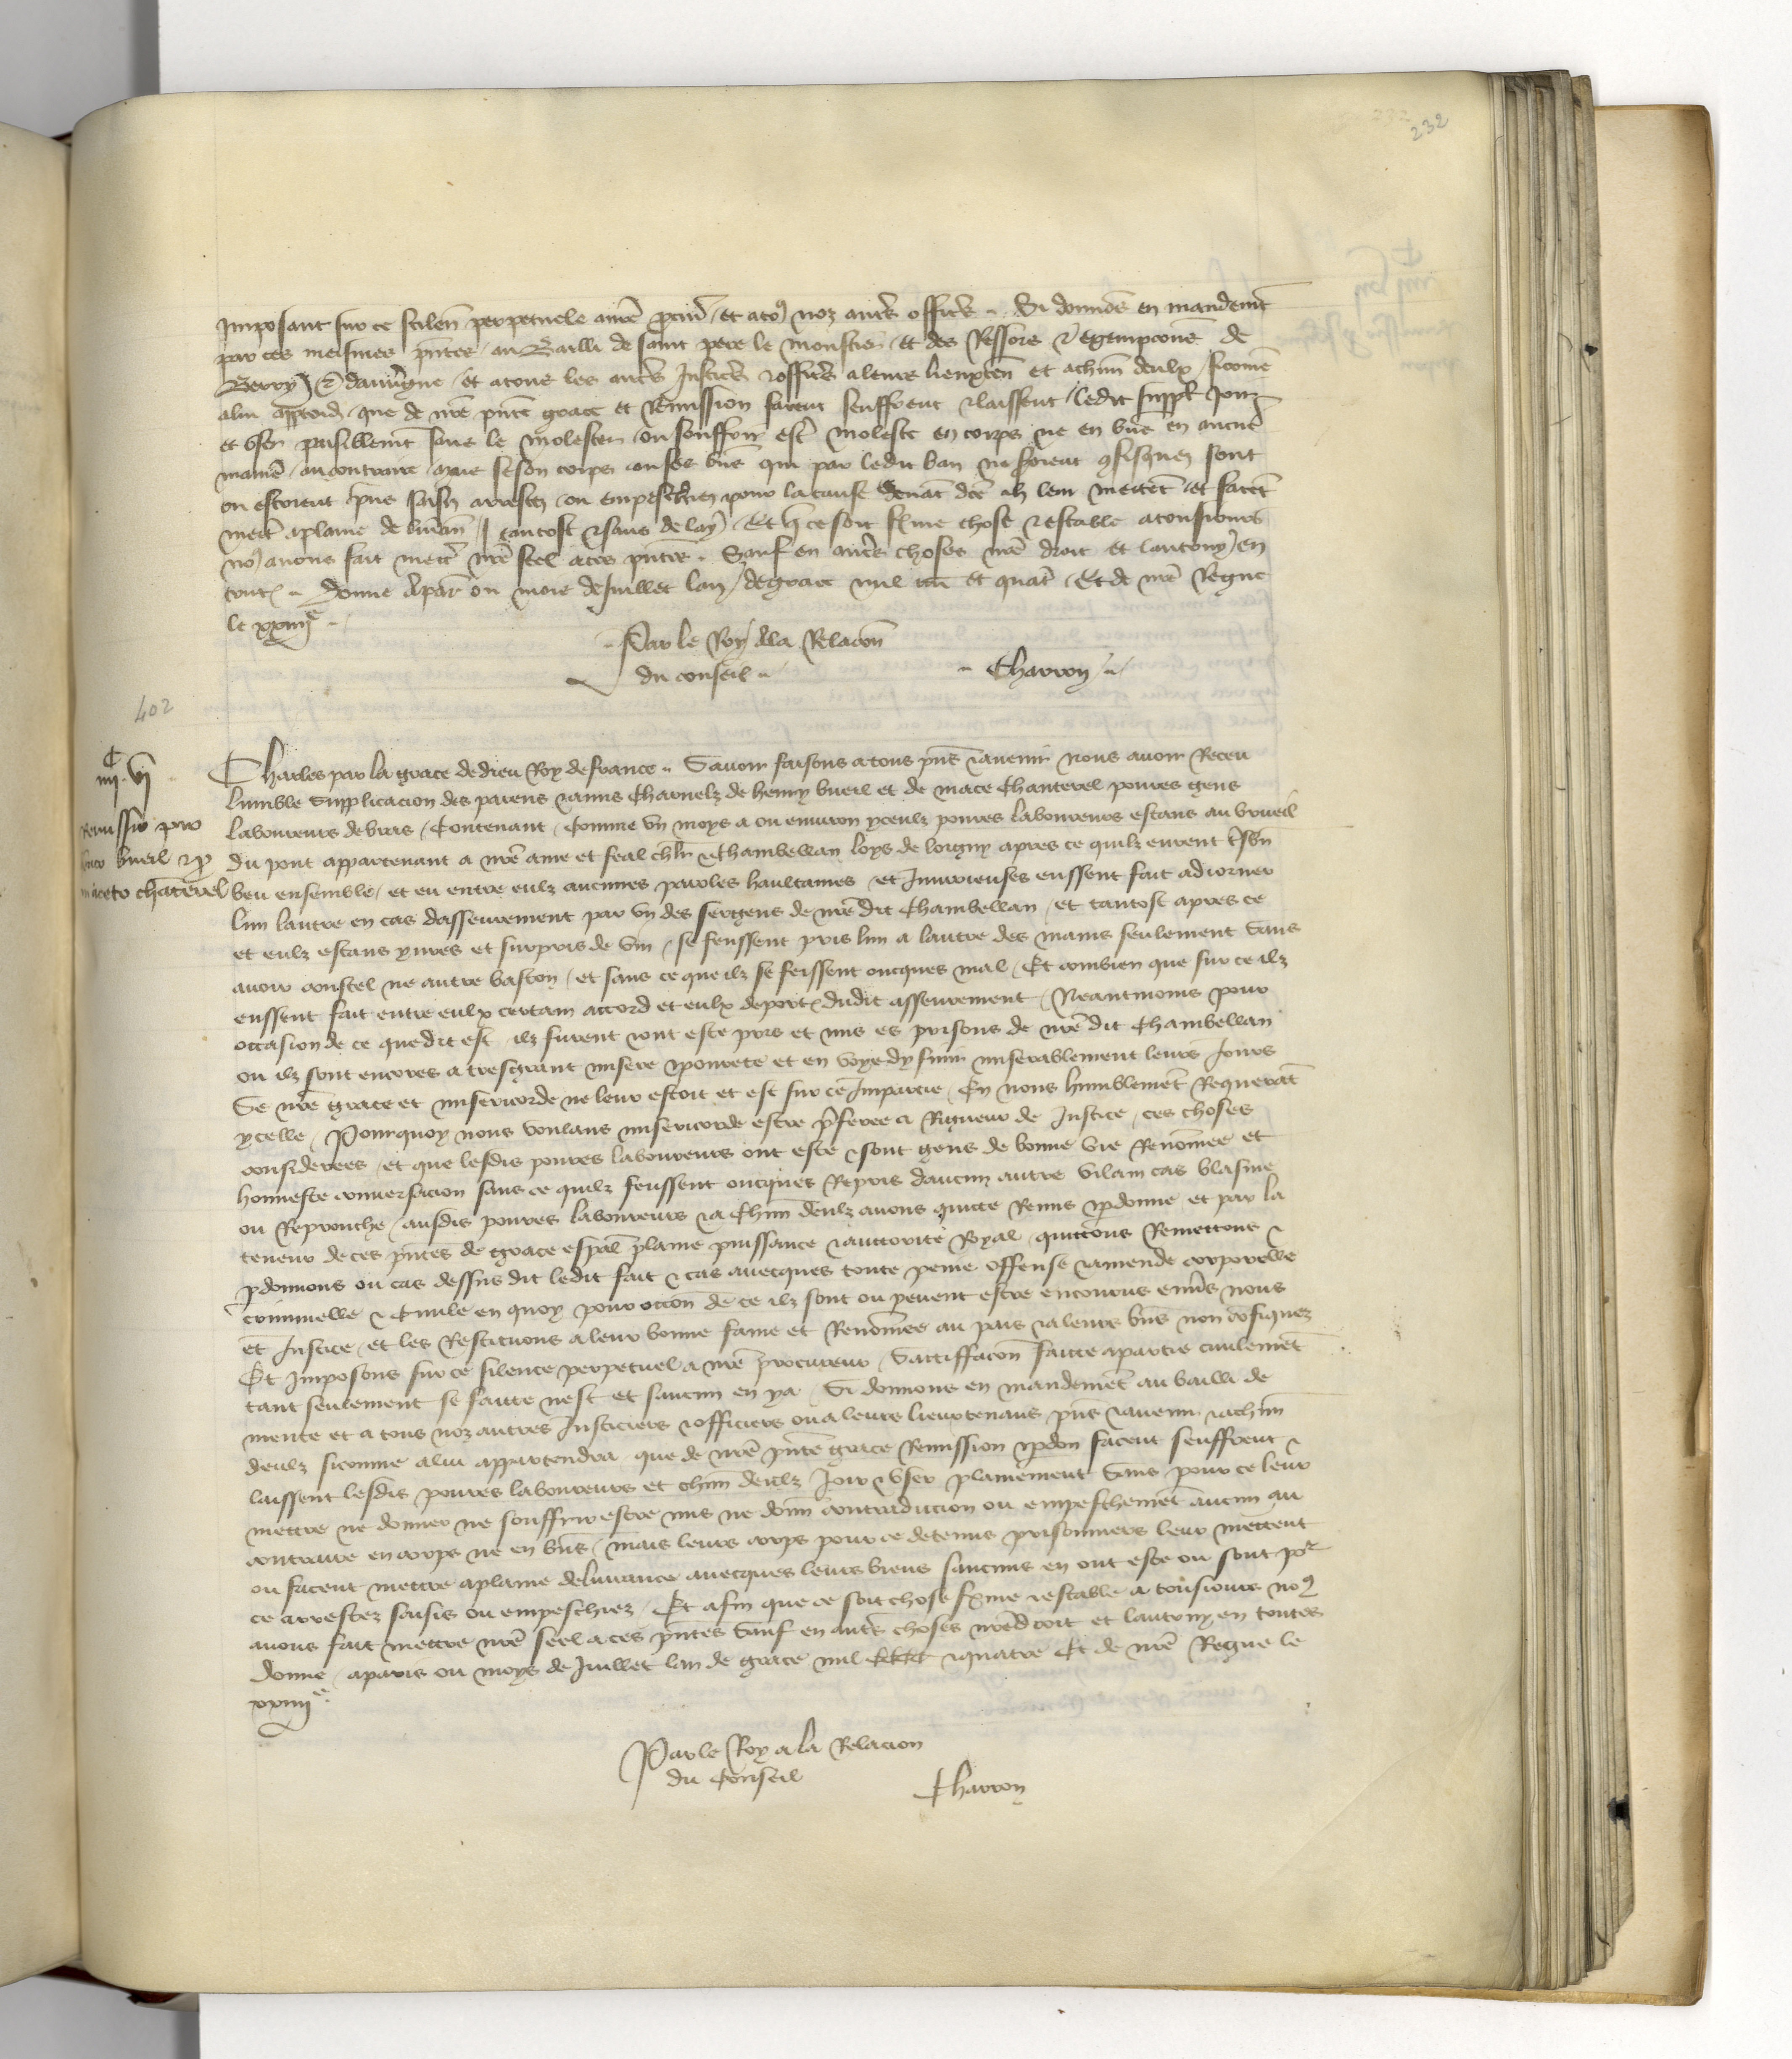 232
Imposant sur ce scilen perpetuele a nrē pcur et a to9 noz autrs officrs Si donnōs en mandemt
par ces meismes pntes au Bailli de saint pere le moustier et des Ressors & exempcions de
Berry & dauvgne et a tous les autrs Justicrs & officrs a leurs lieuxten et a chun deulx sicomē
a lui apptendr que de nrē pnte grace et Remission facent seuffrent & laissent ledit suppl Joir
et user paisiblemt sans le molester ou souffrir estr moleste en corps ne en biens en aucune
maniē au contraire mais se son corps ou ses biens qui par ledit ban ne seroient 9fisquez sont
ou estoient pris saisiz arrestez ou empeschiez pour la cause devāt dcē ilz leur mettēt et facēt
mettr a plaine delivran tantost & sans delay Et q ce soit ferme chose & estable a tousiours
no9 avons fait mettr nrē seel a ces pntes Sauf en autrs choses nrē droit et lautruy en
toutes Donne a paris ou mois de Juillet lan de grace mil iiiic et quatr Et de nrē Regne
le xxiiiie
Par le Roy a la Relacōn
du conseil Charron
402
C
iiii vi
Remissio pro
henrico bueil & p
maceto chāterel
Charles par la grace de dieu Roy de france Savoir faisons a tous pns & avenir nous avoir Receu
lumble Supplicacion des parens & amis Charnelz de henry bueil et de mace Chanterel povres gens
laboureurs de bras Contenant Comme un moys a ou environ yceulz povres laboureurs estans au brueil
du pont appartenant a nrē ame et feal chlr & Chambellan loys de loigny apres ce quilz eurent tresbn
beu ensemble et eu entre eulz aucunes paroles haultaines et Iniurieuses eussent fait adiorner
lun lautre en cas dasseurement par un des sergens de nrē dit Chambellan et tantost apres ce
et eulz estans yvres et surpris de vin se feussent pris lun a lautre des mains seulement Sans
avoir coustel ne autre baston et sans ce que ilz se feissent oncques mal Et combien que sur ce ilz
eussent fait entre eulx certain accord et eulx deportes dudit asseurement Neantmoins pour
occasion de ce que dit est ilz furent & ont este pris et mis es prisons de nrē dit Chambellan
ou ilz sont encores a tresgrant misere & povrete et en voye dy finir miserablement leurs Jours
Se nrē grace et misericorde ne leur estoit et est sur ce Impartie En nous humblemēt Requerāt
ycelle Pourquoy nous voulans misericorde estre pferee a Rigueur de Justice ces choses
considerees et que lesdis povres laboureurs ont este & sont gens de bonne vie Renōmee et
honneste conversacion sans ce quilz feussent oncques Repris daucun autre vilain cas blasme
ou Reprouche ausdis povres laboureurs & a Chun deulz avons quicte Remis & pdonne et par la
teneur de ces pntes de grace espal plaine puissance & auctorite Royal quittons Remettons &
pdonnons ou cas dessus dit ledit fait & cas avecques toute peine offense & amende corporelle
criminelle & Civile en quoy pour occon de ce ilz sont ou pevent estre encourus envrs nous
et Justice et les Restituons a leur bonne fame et Renōmee au pais & a leurs bns non cōfisquez
Et Imposons sur ce silence perpetuel a nrē procureur Sattiffacōn faitte a partie civilemēt
tant seulement se faitte nest et saucun en ya Si donnons en mandemēt au bailli de
meute et a tous noz autres Justiciers & officiers ou a leurs lieuxtenans pns & avenir & a chun
deulz sicomme a lui appartendra que de nrē pnte grace Remission & pdon facent seuffrent &
laissent lesdis povres laboureurs et chun deulz Joir & User plainement Sans pour ce leur
mettre ne donner ne souffrir estre mis ne donn contradiccion ou empeschemēt aucun au
contraire en corps ne en bns mais leurs corps pour ce detenus prisonniers leur mettent
ou facent mettre a plaine delivrance avecques leurs biens saucuns en ont este ou sont por
ce arrestez saisis ou empeschiez Et afin que ce soit chose ferme & estable a tousiours no9
avons fait mettre nrē seel a ces pntes Sauf en autrs choses nrē droit et lautruy en toutes
Donne a paris ou moys de Juillet lan de grace mil cccc & quatre Et de nrē Regne le
xxiiiie
Par le Roy a la Relacion
du Conseil Charron